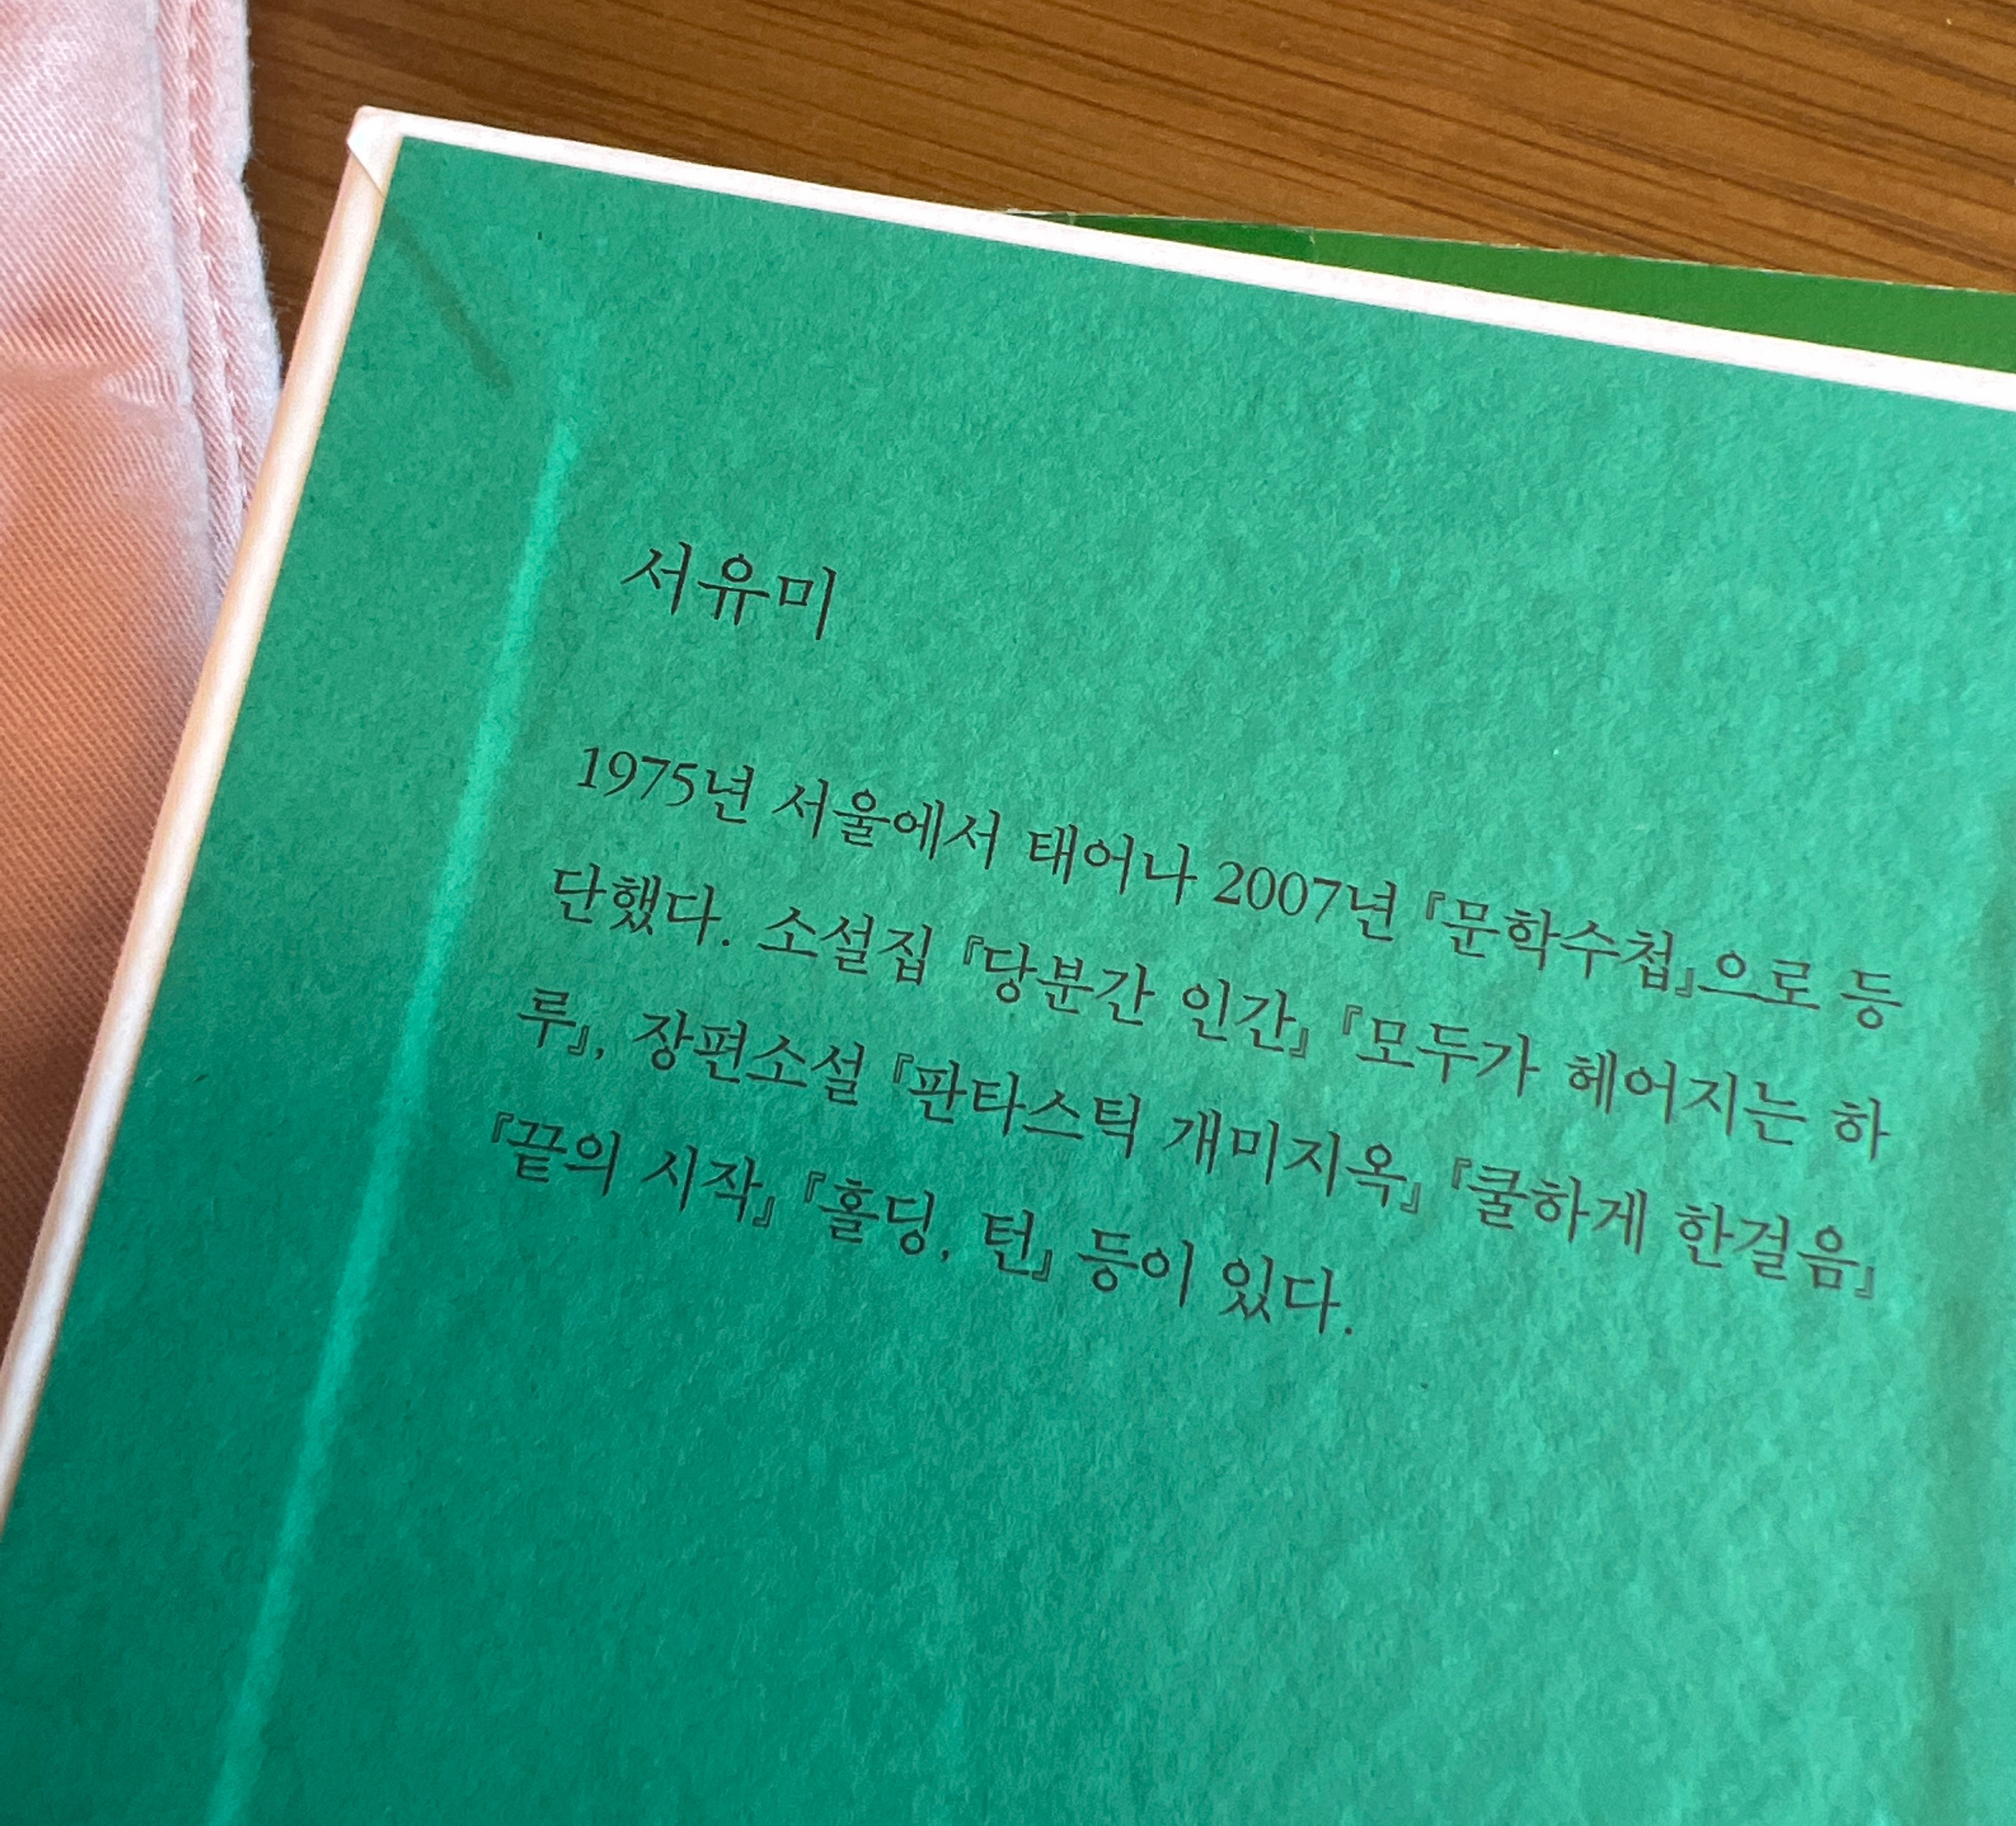 서유미
1975년 서울에서 태어나 2007년 『문학수첩』으로 등
단했다. 소설집 『당분간 인간』 『모두가 헤어지는 하
루』, 장편소설 『판타스틱 개미지옥』 『쿨하게 한걸음』
『끝의 시작』 『홀딩, 턴』 등이 있다.